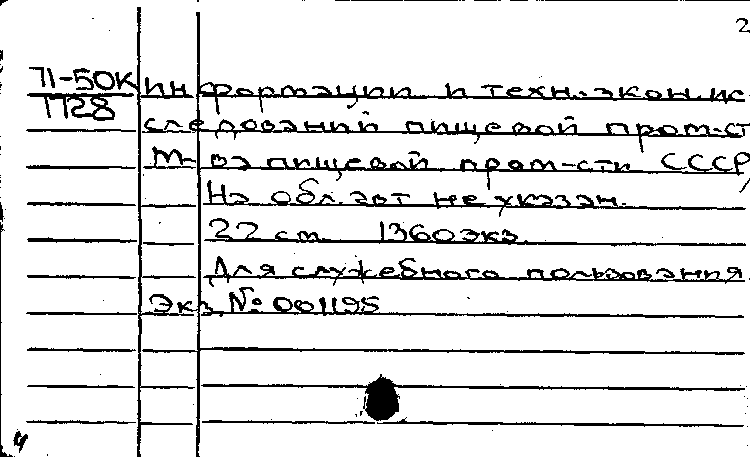 2
71-50К информации и техн.-экон. ис-
1128 следований пищевой пром-сти
М-ва пищевой пром-сти СССР,
На обл. авт. не указан.
22 см 1360 экз.
Для служебного пользования
Экз. № 001195
4